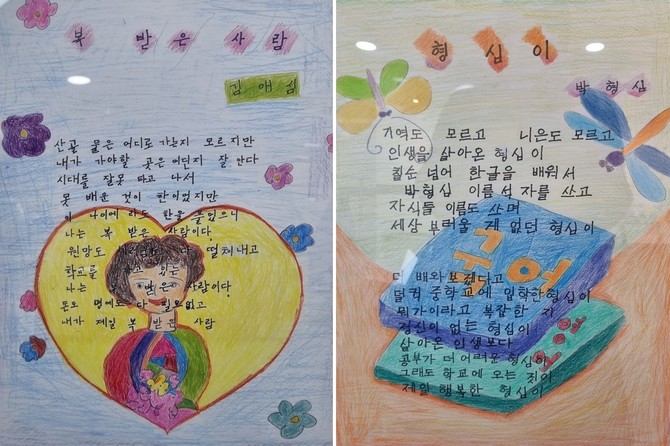 복 받은 사람
김애심
산골 물은 어디로 가는지 모르지만
내가 가야할 곳은 어딘지 잘 안다
시대를 잘못 타고 나서
못 배운 것이 한이었지만
이 나이에라도 한을 풀었으니
나는 복 받은 사람이다
원망도 떨쳐내고
학교를 있는
나는 복 받은 사람이다
돈도 명예도 다 필요없고
내가 제일 복 받은 사람
형심이
박형심
기역도 모르고 니은도 모르고
인생을 살아온 형심이
칠순 넘어 한글을 배워서
박형심 이름 석 자를 쓰고
자식들 이름도 쓰며
세상 부러울 게 없던 형심이
더 배워보겠다고
덜컥 중학교에 입학한 형심이
뭐가이라고 복잡한 지
정신이 없는 형심이
살아온 인생보다
공부가 더 어려운 형심이
그래도 학교에 오는 것이
제일 행복한 형심이
국어